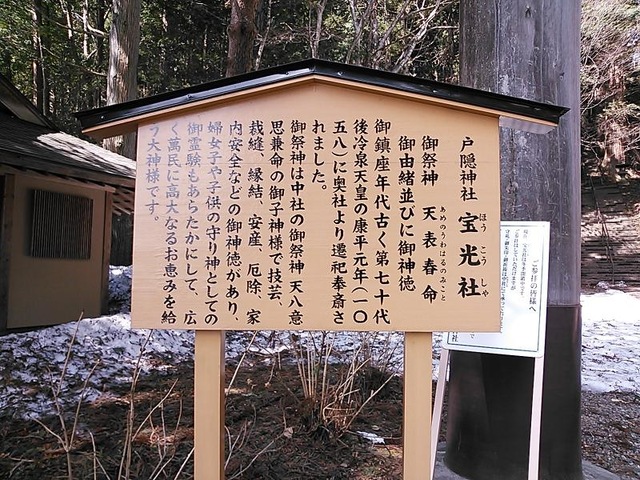 戸隠神社 宝光社
ほうこうしゃ
御祭神 天表春命
あめのうわはるのみこと
御由緒並びに御神徳
御鎮座年代古く第七十代
後冷泉天皇の康平元年(一〇
五八)に奥社より遷祀奉斎さ
れました。
御祭神は中社の御祭神 天八意
思兼命の御子神様で技芸、
裁縫、縁結、安産、厄除、家
内安全などの御神徳があり、
婦女子や子供の守り神としての
御霊験もあらたかにして、広
く萬民に高大なるお恵みを給
う大神様です。
ご参拝の皆様へ